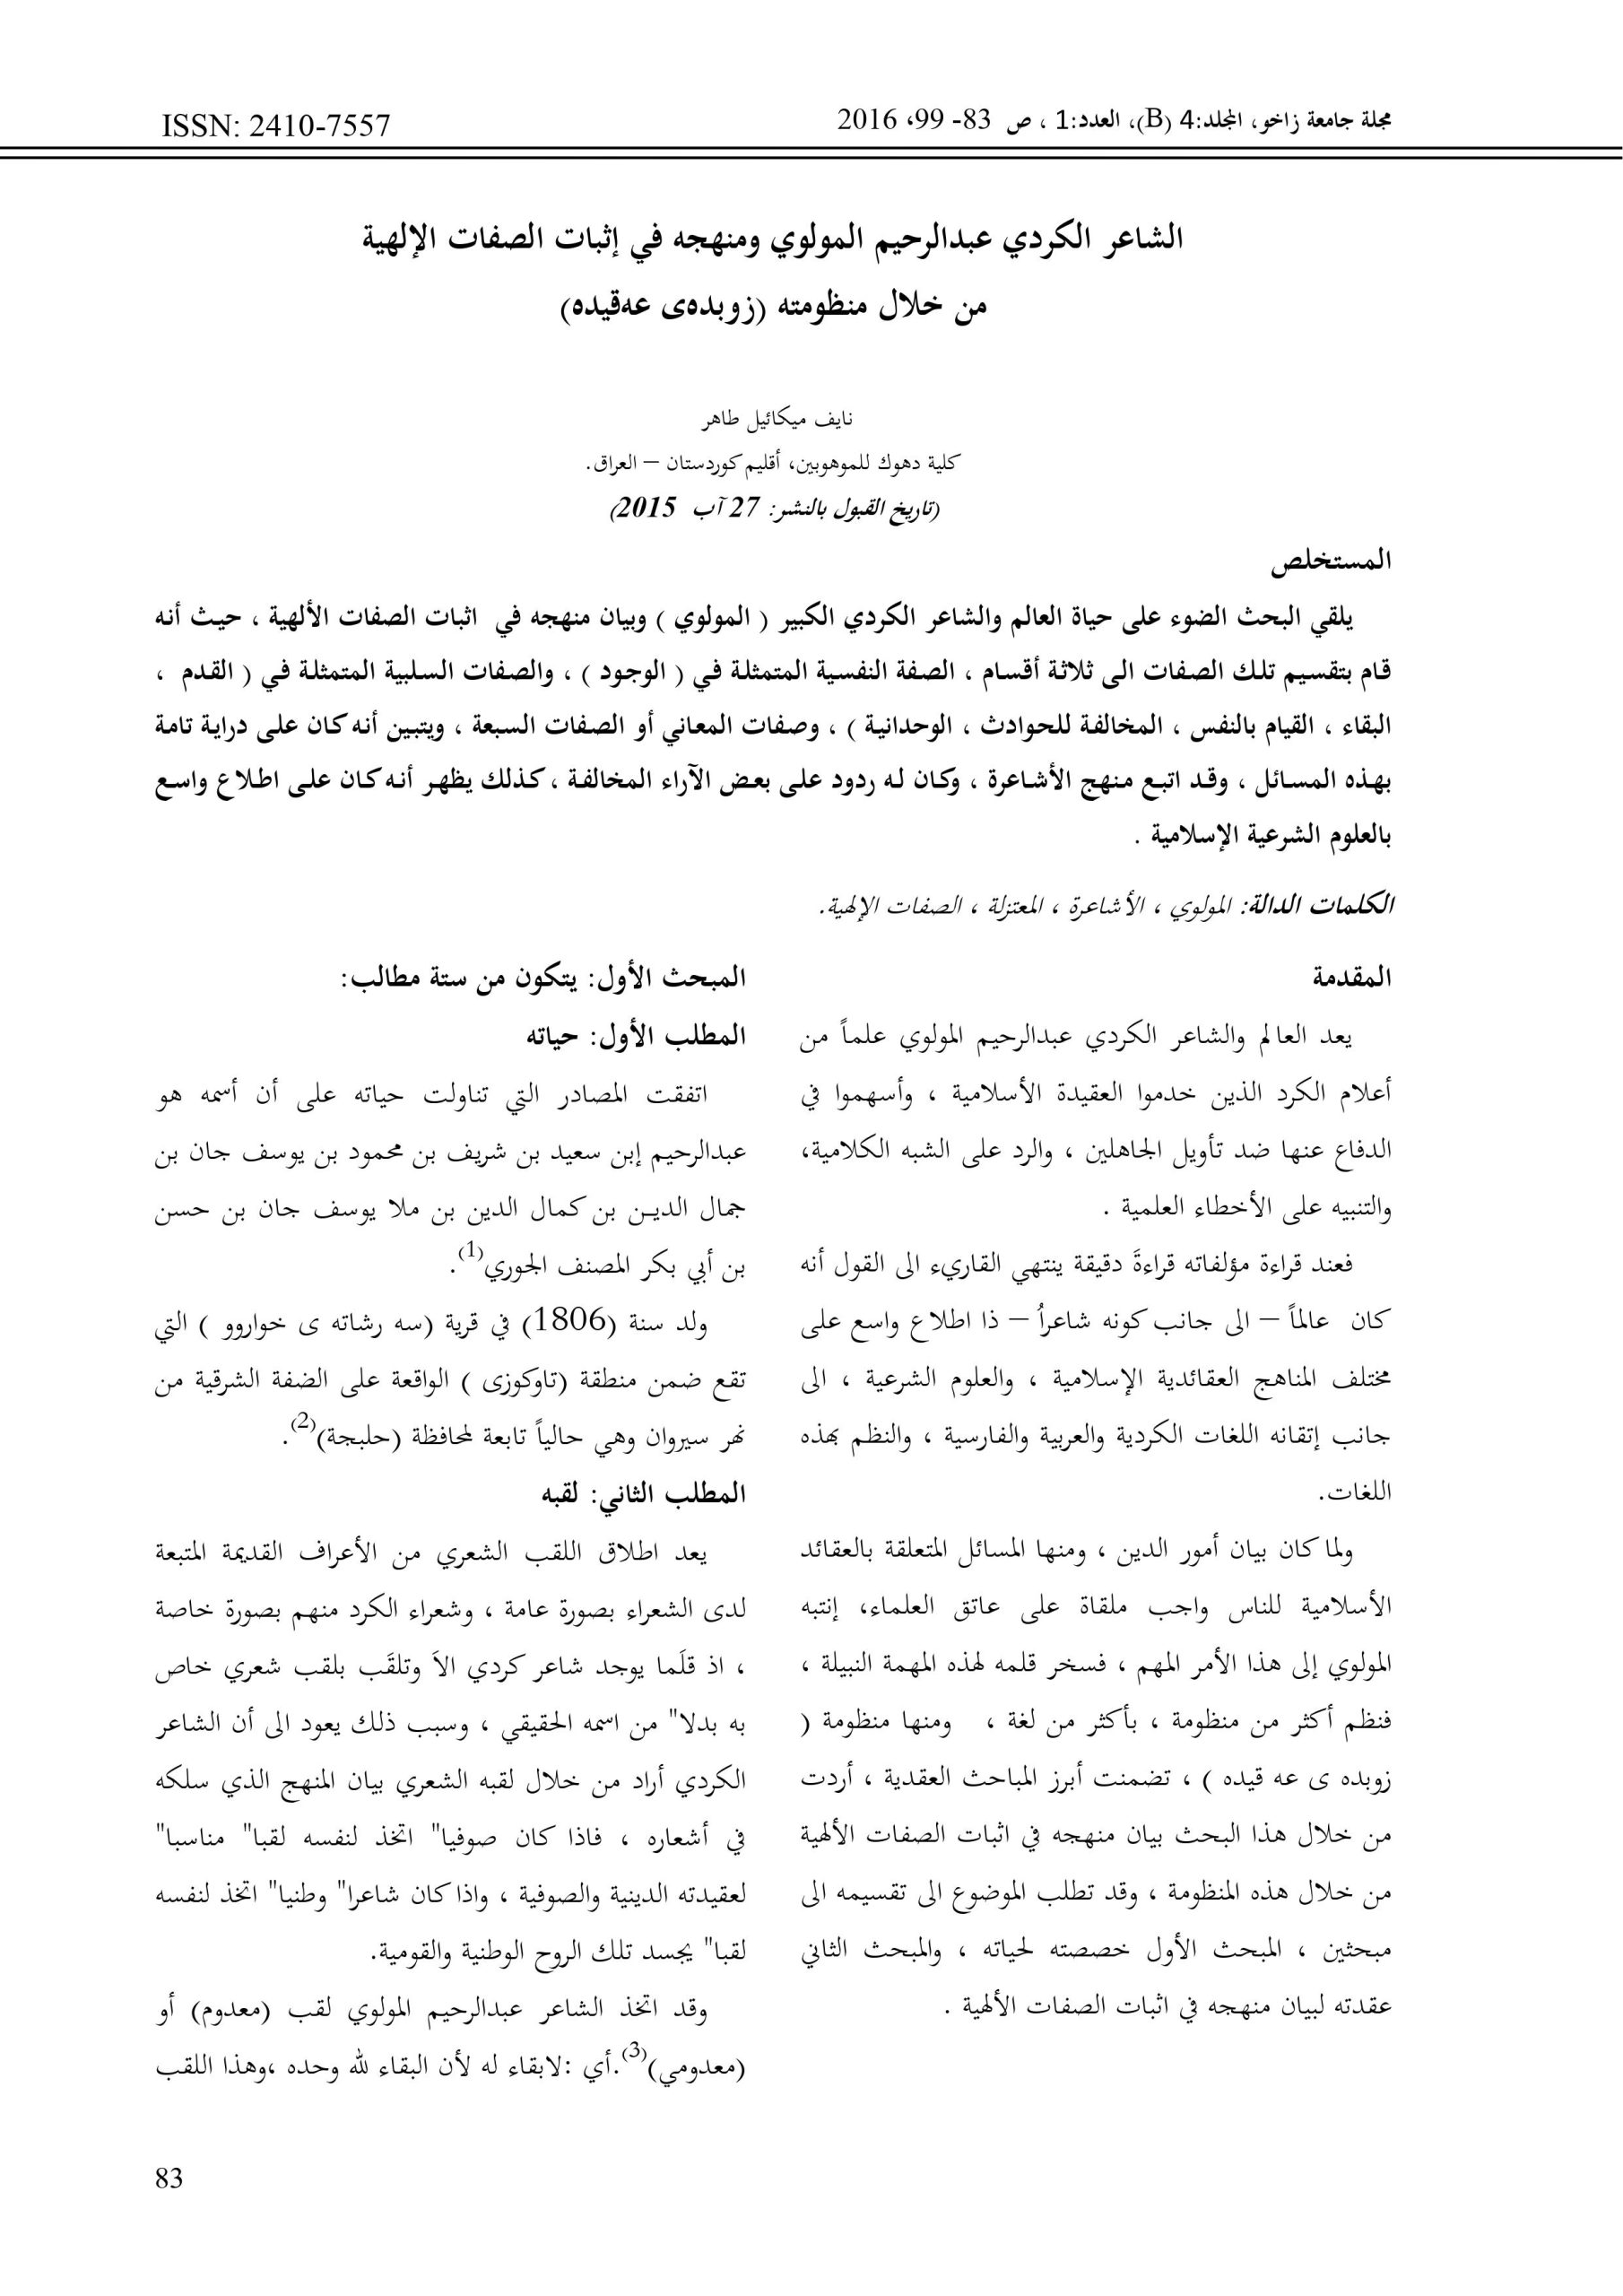 مجلة جامعة زاخو، المجلد:4 (B)، العدد:1 ، ص 83- 99، 2016
ISSN: 2410-7557
الشاعر الكردي عبدالرحيم المولوي ومنهجه في إثبات الصفات الإلهية
من خلال منظومته (زوبدەی عەقیدە)
نايف ميكائيل طاهر
كلية دهوك للموهوبين، أقليم كوردستان – العراق.
(تاريخ القبول بالنشر: 27 آب 2015)
المستخلص
يلقي البحث الضوء على حياة العالم والشاعر الكردي الكبير ( المولوي ) وبيان منهجه في اثبات الصفات الألهية ، حيث أنه
قام بتقسيم تلك الصفات الى ثلاثة أقسام ، الصفة النفسية المتمثلة في ( الوجود ) ، والصفات السلبية المتمثلة في ( القدم ،
البقاء ، القيام بالنفس ، المخالفة للحوادث ، الوحدانية ) ، وصفات المعاني أو الصفات السبعة ، ويتبين أنه كان على دراية تامة
بهذه المسائل ، وقد اتبع منهج الأشاعرة ، وكان له ردود على بعض الآراء المخالفة ، كذلك يظهر أنه كان على اطلاع واسع
بالعلوم الشرعية الإسلامية .
الكلمات الدالة: المولوي ، الأشاعرة ، المعتزلة ، الصفات الإلهية.
المقدمة
يعد العالم والشاعر الكردي عبدالرحيم المولوي علماً من
أعلام الكرد الذين خدموا العقيدة الأسلامية ، وأسهموا في
الدفاع عنها ضد تأويل الجاهلين ، والرد على الشبه الكلامية،
والتنبيه على الأخطاء العلمية .
فعند قراءة مؤلفاته قراءةَ دقيقة ينتهي القاريء الى القول أنه
كان عالماً – الى جانب كونه شاعراُ – ذا اطلاع واسع على
مختلف المناهج العقائدية الإسلامية ، والعلوم الشرعية ، الى
جانب إتقانه اللغات الكردية والعربية والفارسية ، والنظم بهذه
اللغات.
ولما كان بيان أمور الدين ، ومنها المسائل المتعلقة بالعقائد
الأسلامية للناس واجب ملقاة على عاتق العلماء، إنتبه
المولوي إلى هذا الأمر المهم ، فسخر قلمه لهذه المهمة النبيلة ،
فنظم أكثر من منظومة ، بأكثر من لغة ، ومنها منظومة (
زوبده ی عه قیده ) ، تضمنت أبرز المباحث العقدية ، أردت
من خلال هذا البحث بيان منهجه في اثبات الصفات الألهية
من خلال هذه المنظومة ، وقد تطلب الموضوع الى تقسيمه الى
مبحثين ، المبحث الأول خصصته لحياته ، والمبحث الثاني
عقدته لبيان منهجه في اثبات الصفات الألهية .
المبحث الأول: يتكون من ستة مطالب:
المطلب الأول: حياته
اتفقت المصادر التي تناولت حياته على أن أسمه هو
عبدالرحيم إبن سعيد بن شريف بن محمود بن يوسف جان بن
جمال الديـن بن كمال الدين بن ملا يوسف جان بن حسن
بن أبي بكر المصنف الجوري(1).
ولد سنة (1806) في قرية (سه رشاته ی خواروو ) التي
تقع ضمن منطقة (تاوکوزی ) الواقعة على الضفة الشرقية من
نهر سيروان وهي حالياً تابعة لمحافظة (حلبجة)(2).
المطلب الثاني: لقبه
يعد اطلاق اللقب الشعري من الأعراف القديمة المتبعة
لدى الشعراء بصورة عامة ، وشعراء الكرد منهم بصورة خاصة
، اذ قلَما يوجد شاعر كردي الاَ وتلقَب بلقب شعري خاص
به بدلا" من اسمه الحقيقي ، وسبب ذلك يعود الى أن الشاعر
الكردي أراد من خلال لقبه الشعري بيان المنهج الذي سلكه
في أشعاره ، فاذا كان صوفيا" اتخذ لنفسه لقبا" مناسبا"
لعقيدته الدينية والصوفية ، واذا كان شاعرا" وطنيا" اتخذ لنفسه
لقبا" يجسد تلك الروح الوطنية والقومية.
وقد اتخذ الشاعر عبدالرحيم المولوي لقب (معدوم) أو
(معدومي)(3).أي :لابقاء له لأن البقاء لله وحده ،وهذا اللقب
83